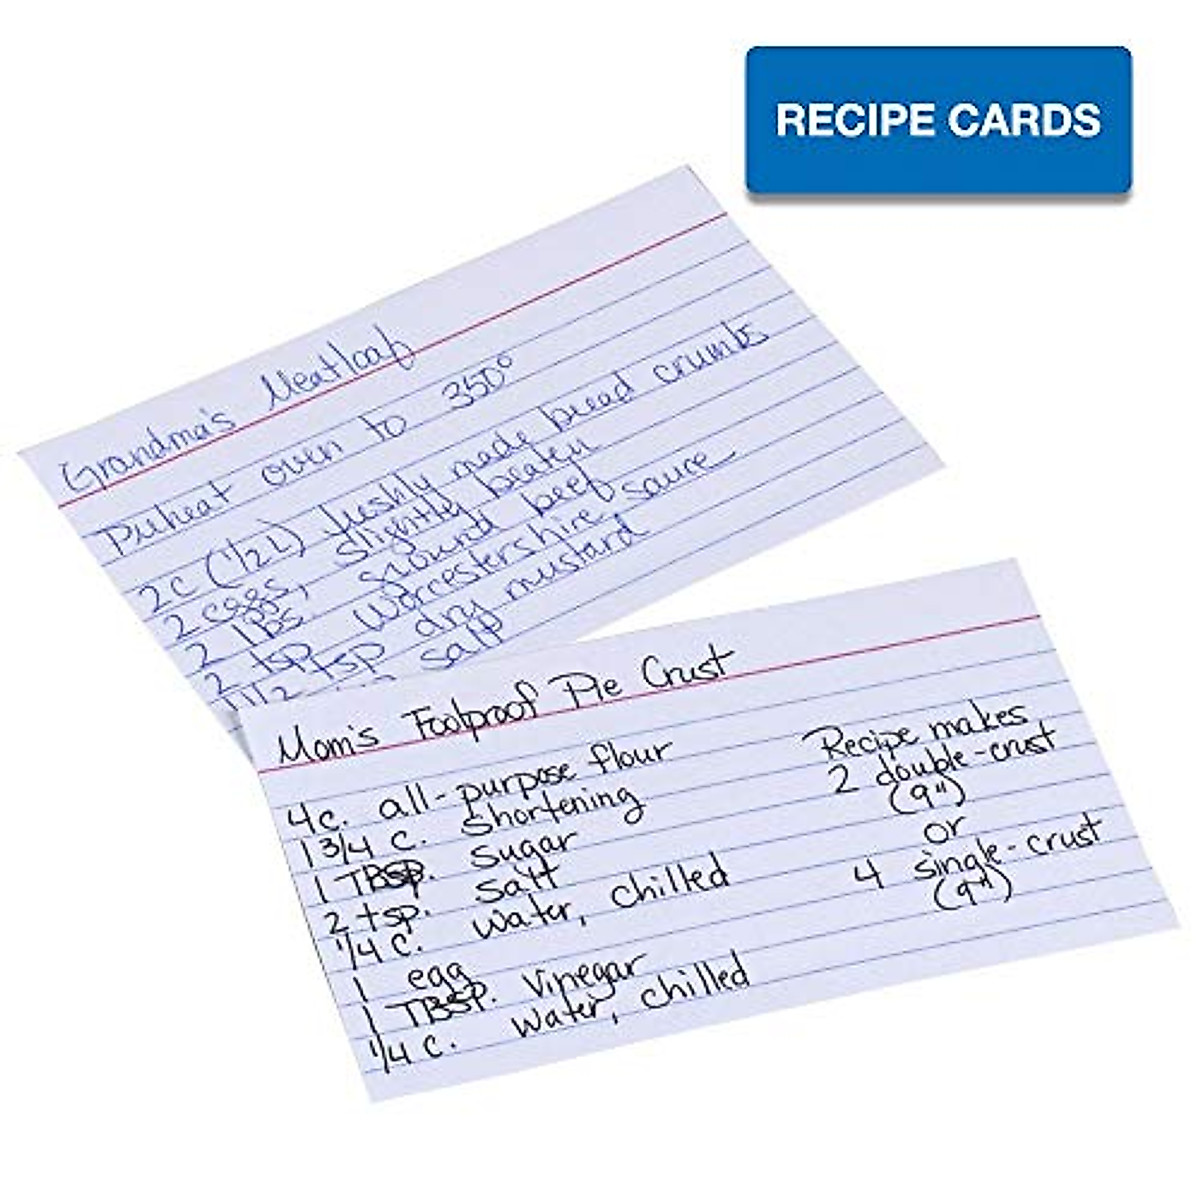 RECIPE CARDS
Grandma's Meatloaf
Preheat oven to 350°
2c (1/2L) freshly made bread crumbs
2 eggs, slightly beaten
2 lbs ground beef
2 tsp Worcestershire sauce
1 1/2 tsp dry mustard
salt
Mom's Foolproof Pie Crust
4c. all-purpose flour
1 3/4 c. shortening
1 TBSP. sugar
2 tsp. salt
1/4 c. water, chilled
1 egg
1 TBSP. vinegar
1/4 c. water, chilled
Recipe makes
2 double-crust
(9")
or
4 single-crust
(9")